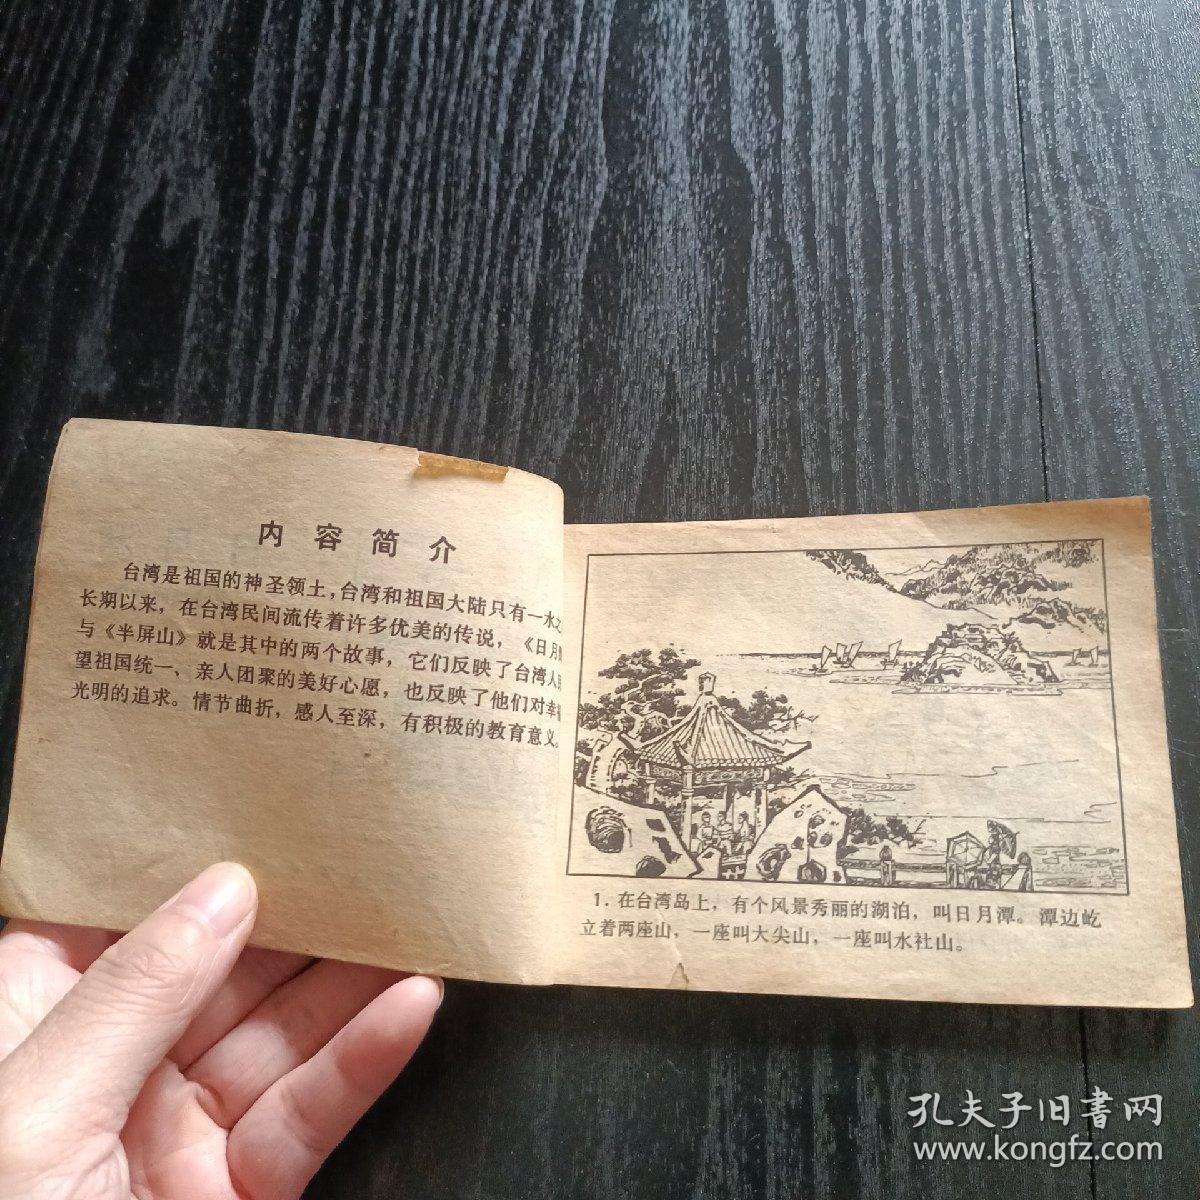 内容简介
台湾是祖国的神圣领土,台湾和祖国大陆只有一水之
长期以来,在台湾民间流传着许多优美的传说,《日月
与《半屏山》就是其中的两个故事,它们反映了台湾人
望祖国统一、亲人团聚的美好心愿,也反映了他们对幸
光明的追求。情节曲折,感人至深,有积极的教育意义。
1.在台湾岛上,有个风景秀丽的湖泊,叫日月潭。潭边屹
立着两座山,一座叫大尖山,一座叫水社山。
孔夫子旧書网
www.kongfz.com